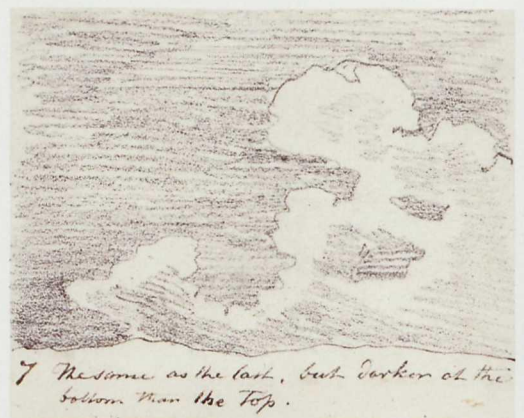 7 The same as the last, but darker at the
bottom than the Top.